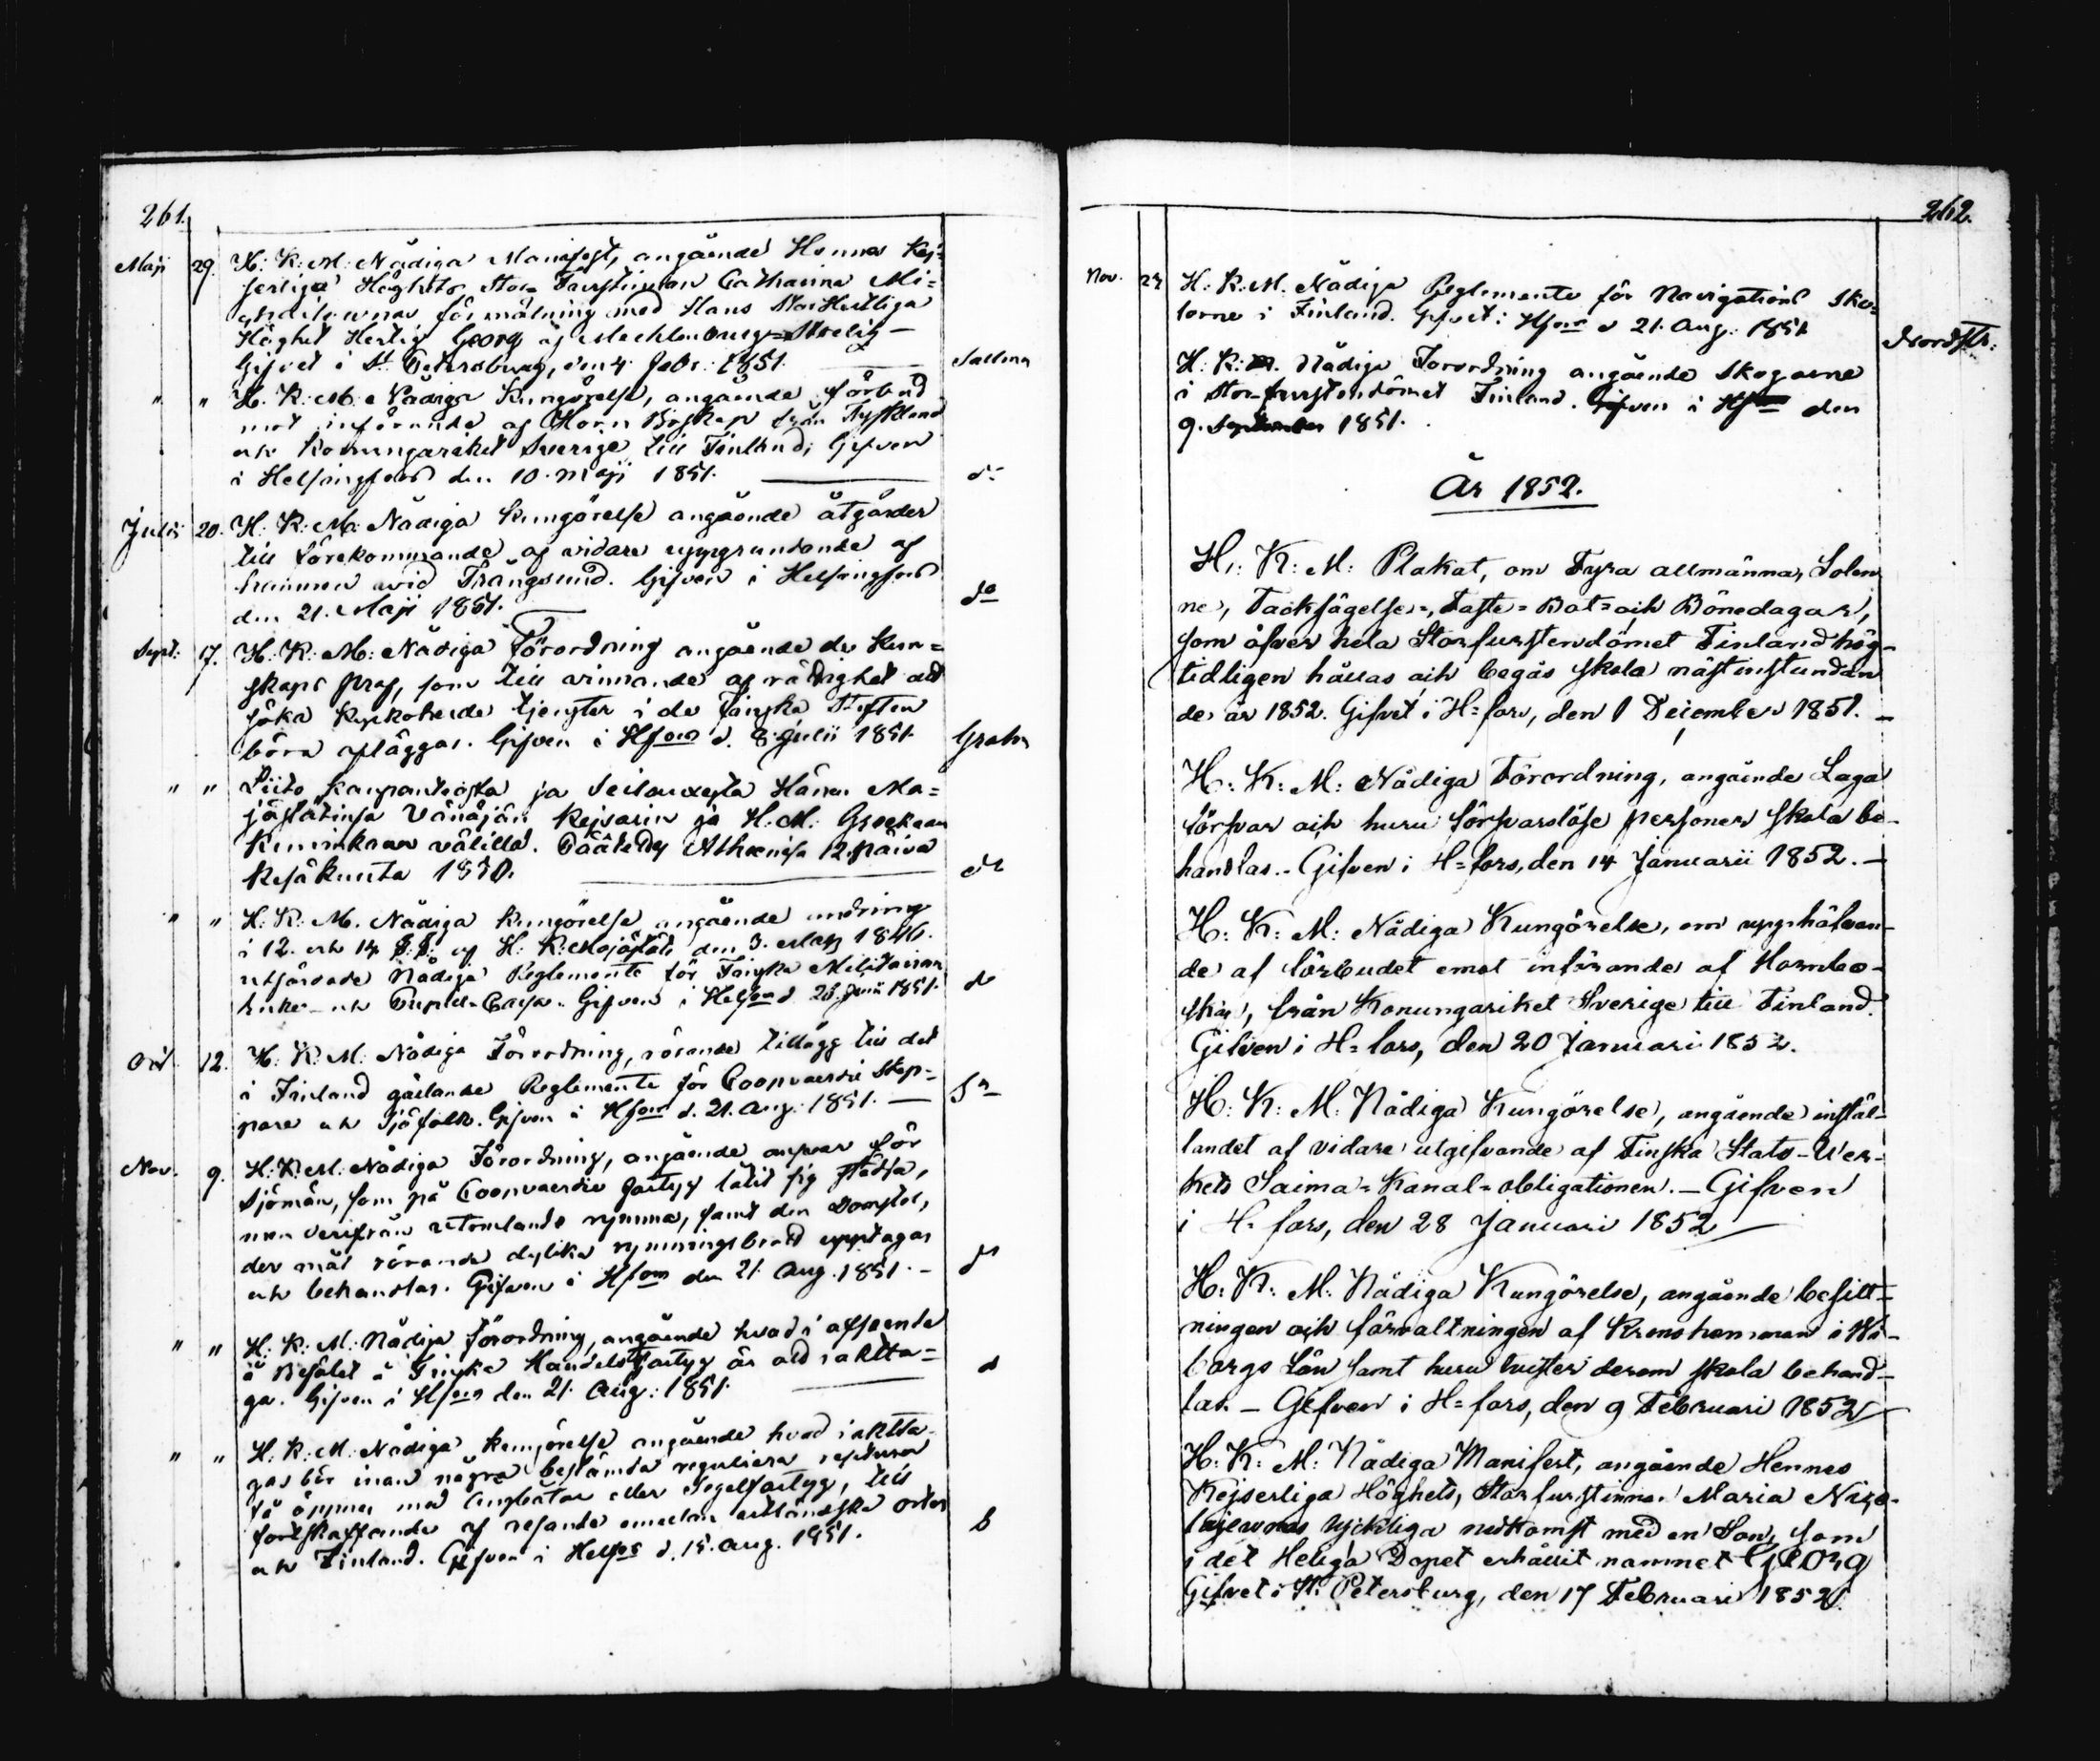 261.
Maji 29. H: K: M: Nådiga Manifest, angående Hennes Kej=
serliga Höghets Stor Furstinnan Catharina Mi=
chailownas förmälning med Hans Stor Hertliga
Höghet Hertig Georg af Mecklenburg=Strelitz —
Gifvet i St Petersburg, den 4 Febr: 1851. Sallmen
" " H. K: M: Nådiga Kungörelse, angående förbud
mot införande af Horn Boskap från Tyskland
och Konungariket Sverige till Finland; Gifven
i Helsingfors den 10. Maji 1851. do
Julii 20. H: K: M: Nådiga Kungörelse angående åtgärder
till förekommande af vidare uppgrundande af
hamnen wid Trångsund. Gifven i Helsingfors
den 21. Maji 1851. do
Sept: 17. H: K: M: Nådiga Förordning angående de Kun=
skaps prof, som till vinnande af rättighet att
söka Kyrkoherde tjenster i de Finska Stiften
böra afläggas. Gifven i Hfors d. 8 Julii 1851 Grahn
" " Liito kaupanteosta ja Seilauxesta Hänen Ma=
jästätinsä Vänäjän Kejsarin ja H: M: Grekaan
Kuninkaan välillä. Päätetty Athenissa 12. päivä
Kesäkuuta 1850. do
" " H: K: M. Nådiga Kungörelse angående ändring
i 12. och 14 §.§. af H: K: Majestäts den 3. Maj 1846.
utfärdade Nådiga Reglemente för Finska Militairens
Enke- och Pupill-Cassa. Gifven i Helsfors d. 28. Junii 1851. do
Oct. 12. H: K: M: Nådiga Förordning, rörande tillägg till det
i Finland gällande Reglemente för Coopvaerdie Skep=
pare och Sjöfolk. Gifven i Hfors d. 21. Aug: 1851. —
Nov. 9. H: K: M: Nådiga Förordning, angående ansvar för
Sjömän, som på Coopvaerdie fartyg låtit sig städsla,
men derifrån utomlands rymma, samt den Domstol,
der mål rörande dylika rymningsbrott upptagas
och behandlas. Gifven i Hfors den 21. Aug. 1851. — do
" " H: K: M: Nådiga Förordning, angående hvad i afseende
å Befälet å Finska Handelsfartyg är att iaktta=
ga. Gifven i Hfors den 21. Aug: 1851. d
" " H. K: M: Nådiga Kungörelse angående hvad iaktta-
gas bör innan några bestämda reguliera
få öppnas med Ångbåtar eller Segelfartyg, till
fortskaffande af resande emellan utländska orter
och Finland. Gifven i Helsfors d. 15. Aug. 1851.
262.
Nov. 24 H: K: M. Nådiga Reglemente för Navigations Sko=
lorne i Finland. Gifvet i Hfors d 21. Aug: 1851 Nordstr:
H: K: M. Nådiga Förordning angående Skogarne
i Storfurstendömet Finland. Gifven i Hfors den
9. September 1851.
År 1852.
H: K: M: Plakat, om Fyra allmänna, Solen
ne, Tacksägelse=, Faste= Bot= och Bönedagar,
som öfver hela Storfurstendömet Finland hög-
tidligen hållas och begås skola nästinstundan
de år 1852. Gifvet i H=fors, den 1 December 1851. —
H: K: M: Nådiga Förordning, angående Laga
försvar och huru försvarslöse personer skola be-
handlas. - Gifven i H=fors, den 14 Januarii 1852. —
H: K: M: Nådiga Kungörelse, om upphäfvan-
de af förbudet emot införande af Hornbo-
skap, från Konungariket Sverige till Finland.
Gifven i H=fors, den 20 Januari 1852.
H: K: M: Nådiga Kungörelse, angående instäl-
landet af vidare utgifvande af Finska Stats-Ver-
kets Saima=Kanal=obligationen. — Gifven
i H=fors, den 28 Januari 1852
H: K: M: Nådiga Kungörelse, angående besitt=
ningen och förvaltningen af Kronohemman i Wi-
borgs Län samt huru tvister derom skola behand-
las. — Gifven i H=fors, den 9 Februari 1852
H: K: M: Nådiga Manifest, angående Hennes
Kejserliga Höghets, Storfurstinnan Maria Nico-
lajewnas lyckliga nedkomst med en Son, som
i det Heliga Dopet erhållit namnet Georg
Gifvet i St. Petersburg, den 17 Februari 1852.